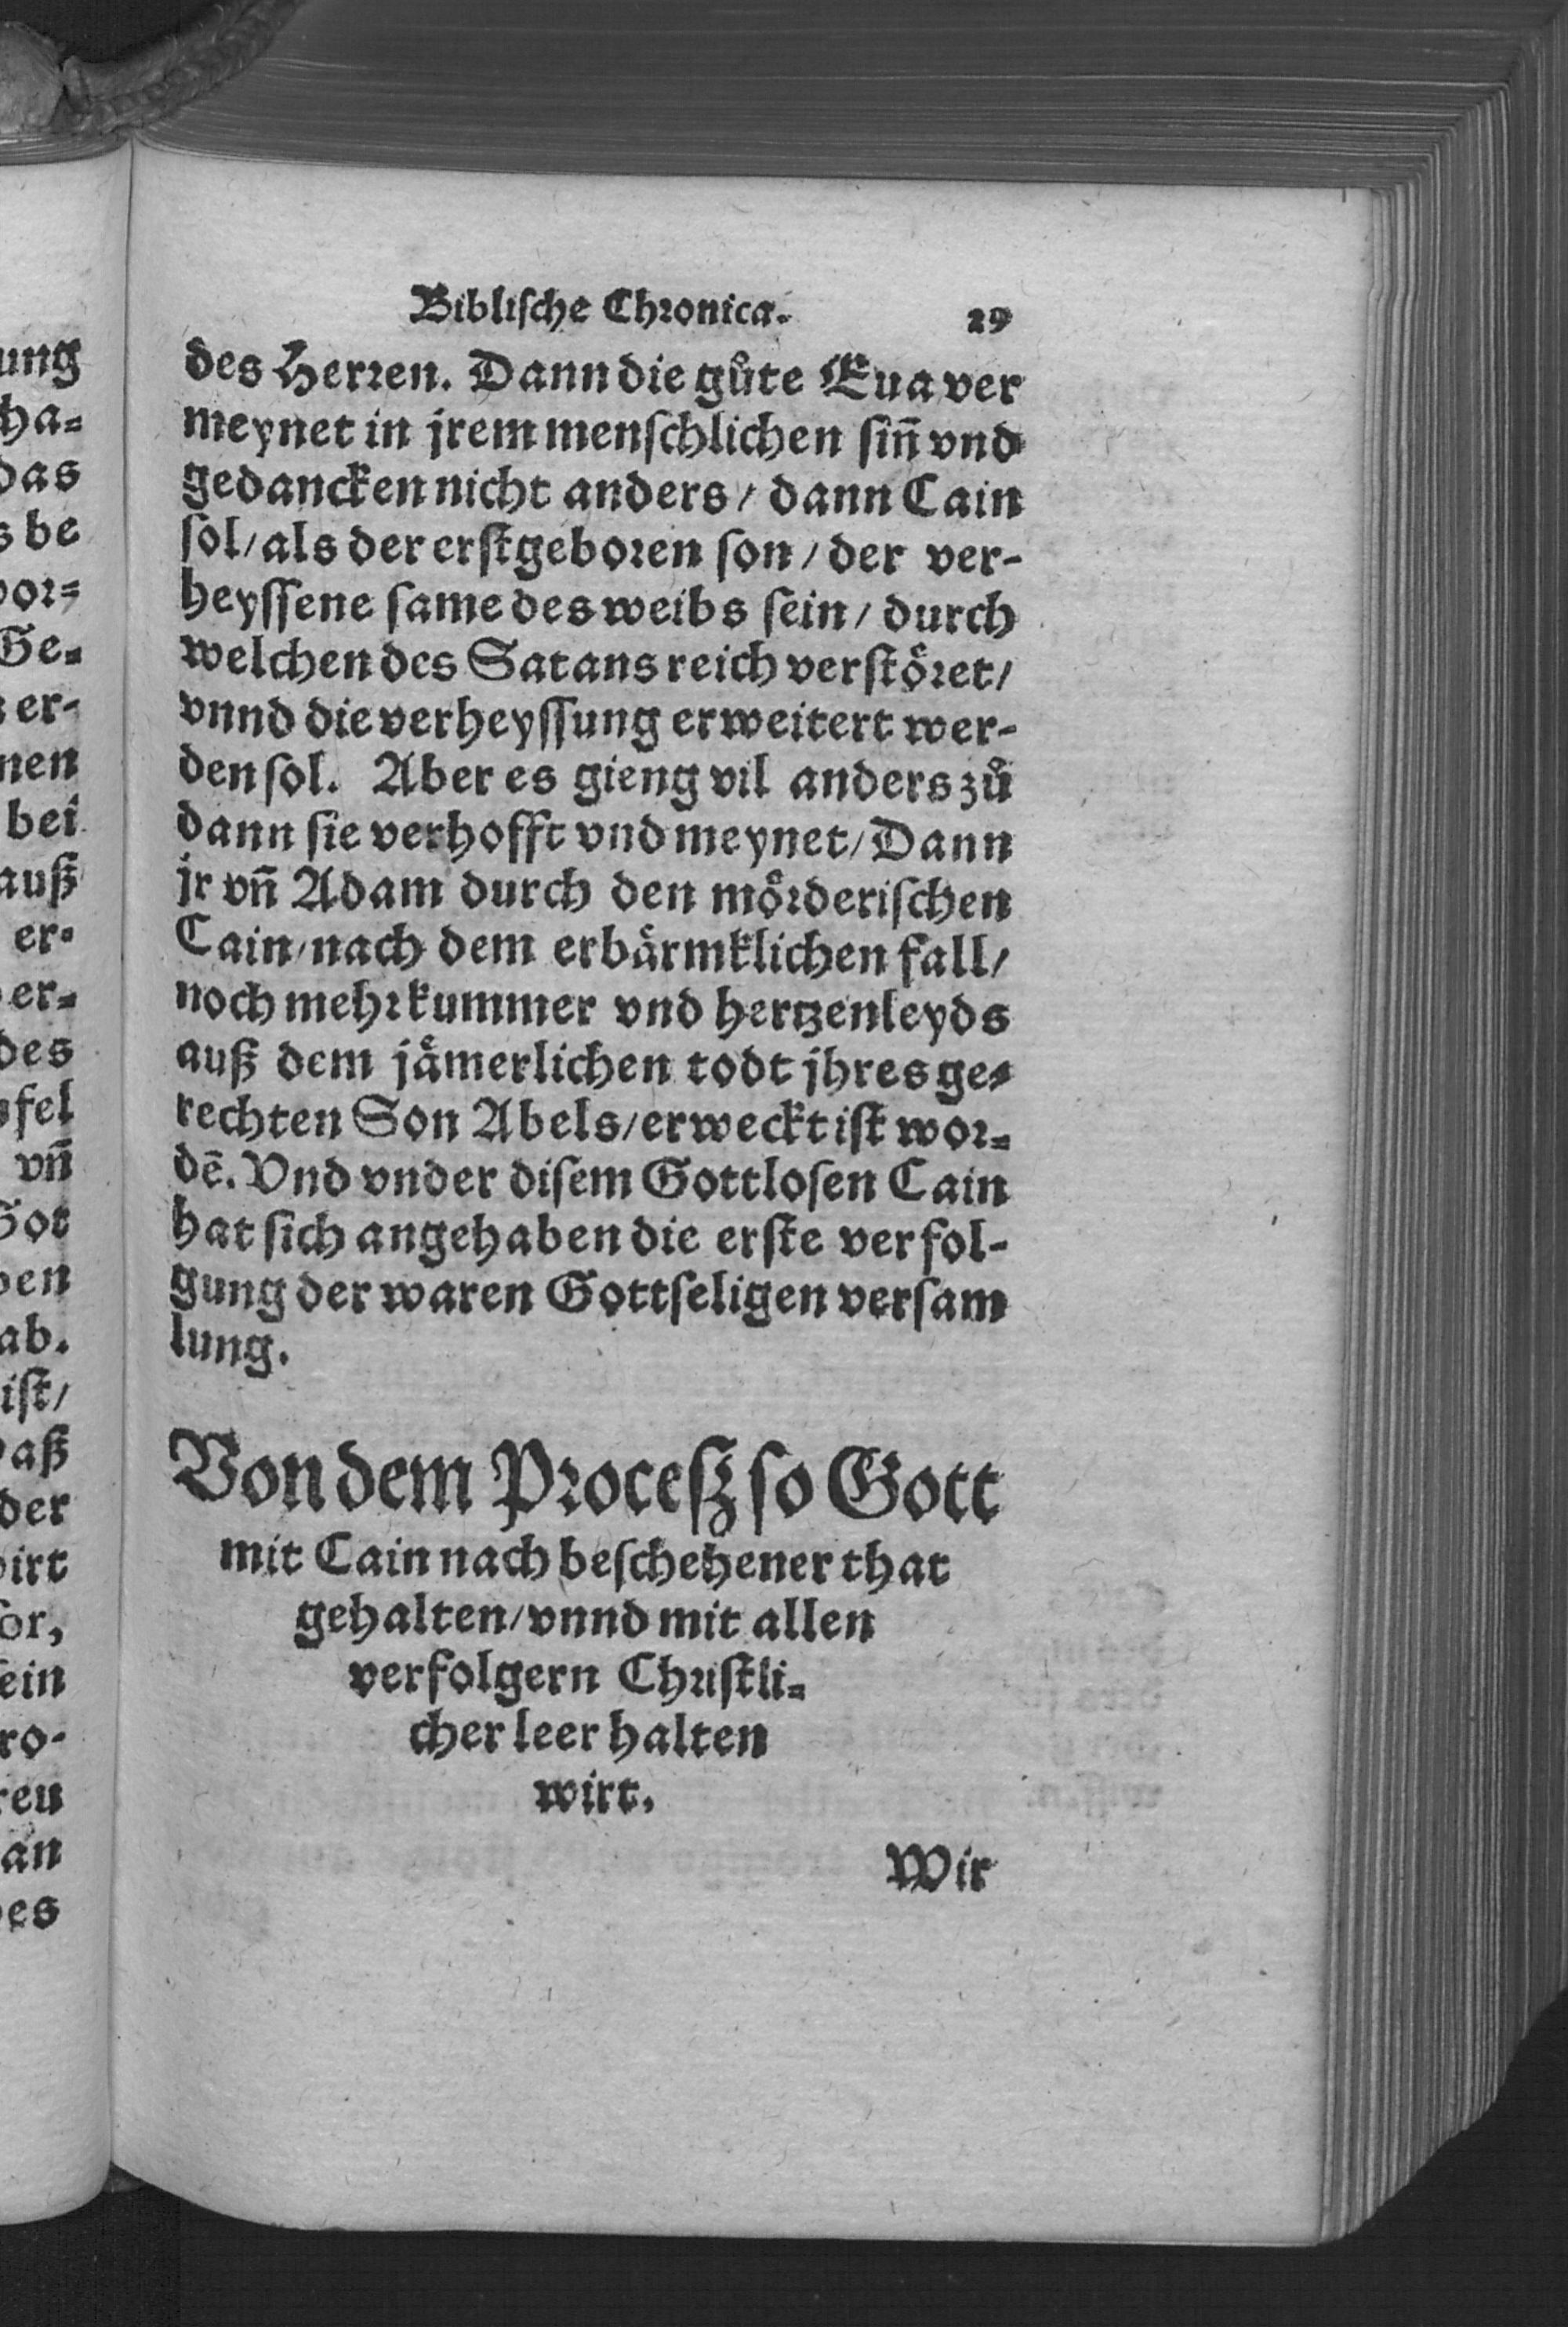 Bibliſche Chronica. 29
des Herren. Dann die gůte Eua ver
meynet in jrem menſchlichen ſiñ vnd
gedancken nicht anders / dann Cain
ſol / als der erſtgeboren ſon / der ver-
heyſſene ſame des weibs ſein / durch
welchen des Satans reich verſtoͤret /
vnnd die verheyſſung erweitert wer-
den ſol. Aber es gieng vil anders zů
dann ſie verhofft vnd meynet / Dann
jr vñ Adam durch den moͤrderiſchen
Cain / nach dem erbaͤrmklichen fall /
noch mehr kummer vnd hertzenleyds
auß dem jaͤmerlichen todt jhres ge-
rechten Son Abels / erweckt iſt wor-
dē. Vnd vnder diſem Gottloſen Cain
hat ſich angehaben die erſte verfol-
gung der waren Gottſeligen verſam
lung.
Von dem Proceſz ſo Gott
mit Cain nach beſchehener that
gehalten / vnnd mit allen
verfolgern Chriſtli-
cher leer halten
wirt.
Wir